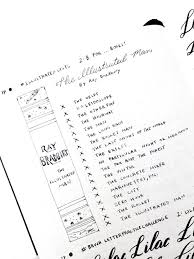 The Illustrated Man
By Ray Bradbury
X THE VELDT
X KALEIDOSCOPE
X THE OTHER FOOT
X THE HIGHWAY
X THE MAN
X THE LONG RAIN
X THE ROCKET MAN
X THE LAST NIGHT OF THE WORLD
X THE EXILES
X NO PARTICULAR NIGHT OR MORNING
X THE FOX AND THE FOREST
X THE VISITOR
X THE CONCRETE MIXER
X MARIONETTES, INC.
X THE CITY
X ZERO HOUR
X THE ROCKET
X THE ILLUSTRATED MAN
RAY
BRADBURY
THE
ILLUSTRATED
MAN
Lilac
Lilac